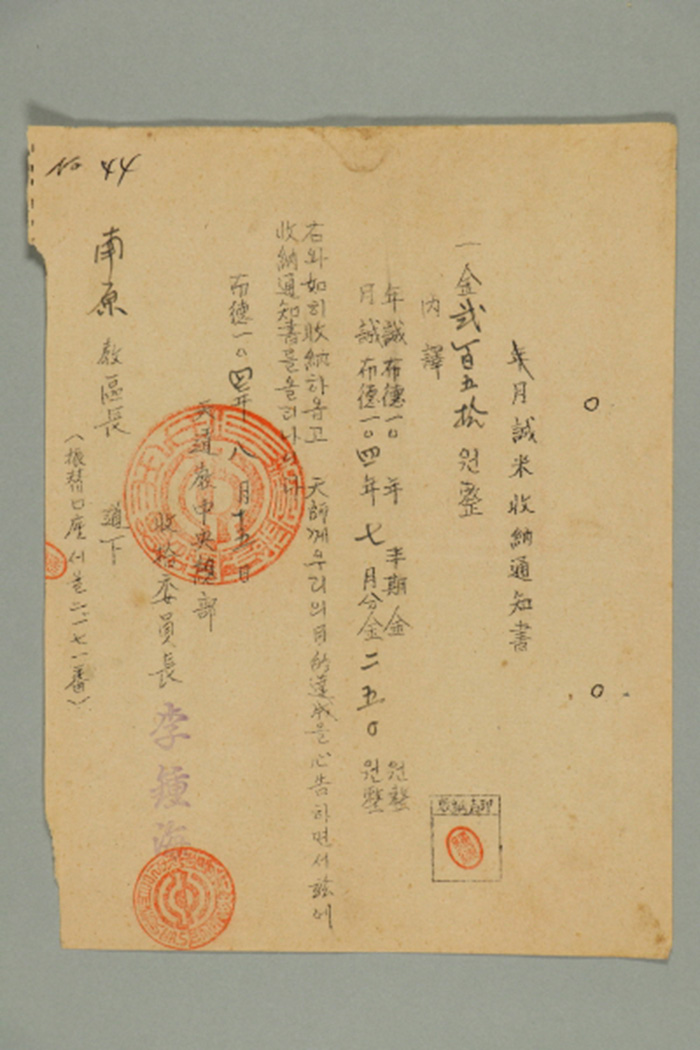 年月誠米收納通知書
一金貳百五拾원整
內譯
年誠布德一〇 年 半期金 원整
月誠布德一〇四年七月分金二五〇원整
右와如히收納하옵고 天師께우리의目的達成을心告하면서玆에
收納通知書를올리나니다
布德一〇四年八月十五日
天道敎中央總部
收拾委員長 李鍾海
南原敎區長 道下
(振替口座서울二一七一番)
No 44